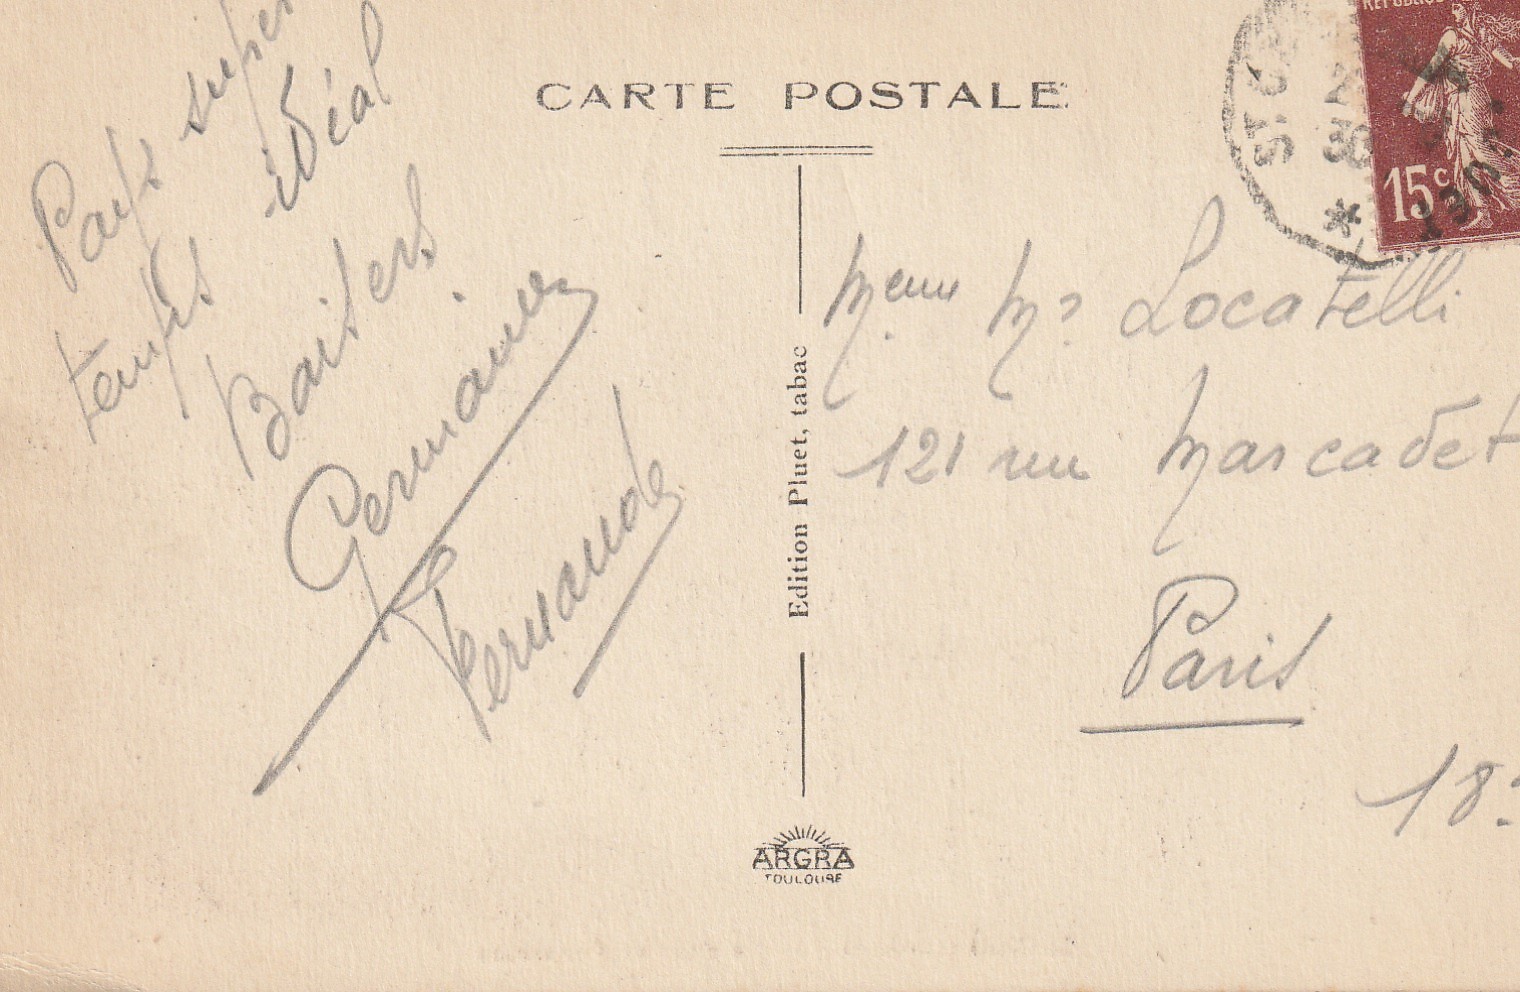 CARTE POSTALE
Pays super
temps idéal
Baisers
Germaine
Fernande
Edition Pluet, tabac
ARGRA
TOULOUSE
REPUBLIQUE
15c
ST. G
Meur Mr Locatelli
121 rue Marcadet
Paris
18